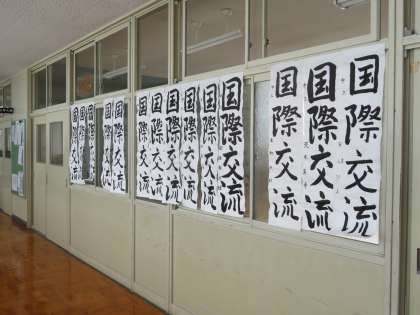 国際交流
国際交流
国際交流
国際交流
国際交流
国際交流
国際交流
国際交流
国際交流
国際交流
国際交流
国際交流
国際交流
国際交流